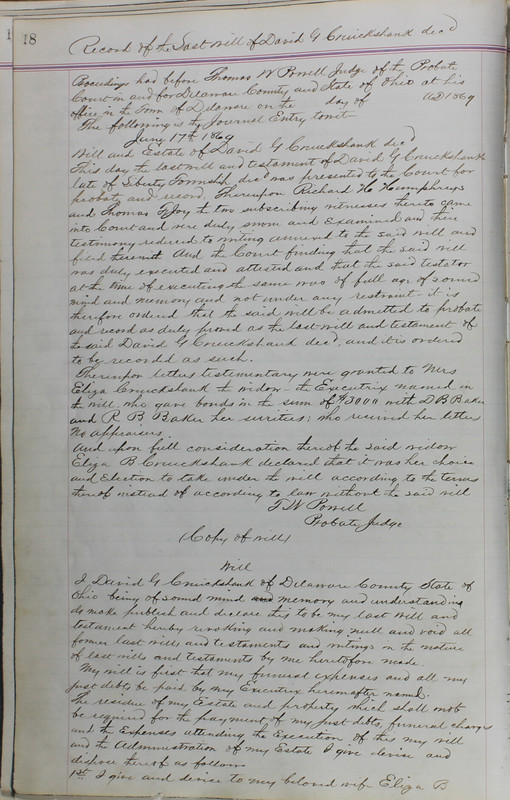 18
Record of the Last Will of David G Cruickshank dec'd
Proceedings had before Thomas W Powell Judge of the Probate
Court in and for Delaware County and State of Ohio at his
office in the Town of Delaware on the day of AD 1869
The following is the Journal Entry towit
June 17th 1869
Will and Estate of David G Cruickshank dec'd
This day the last will and testament of David G Cruickshank
late of Liberty Township dec'd was presented to the Court for
probate and record, Thereupon Richard H. Humphreys
and Thomas the two subscribing witnesses thereto came
into Court and were duly sworn and Examined and their
testimony reduced to writing annexed to the said will and
filed therewith And the Court finding that the said will
was duly executed and attested and that the said testator
at the time of executing the same was of full age of sound
mind and memory and not under any restraint it is
therefore ordered that the said will be admitted to probate
and record as duly proved as the last will and testament of
the said David G Cruickshank dec'd, and it is ordered
to be recorded as such.
Thereupon letters testamentary were granted to Mrs
Eliza Cruickshank the widow - the Executrix named in
the will, who gave bonds in the sum of $3000 with D B Baker
and R B Baker her surities; who received her letters
No appraisers.
And upon full consideration thereof the said widow
Eliza B Cruickshank declared that it was her choice
and Election to take under the will according to the terms
thereof instead of according to law without the said will
T W Powell
Probate Judge
(Copy of will)
Will
I David G Cruickshank of Delaware County State of
Ohio being of sound mind and memory and understanding
do make publish and declare this to be my last will and
testament hereby revoking and making null and void all
former last wills and testaments and writings in the nature
of last wills and testaments by me heretofore made.
My will is first that my funeral expenses and all my
just debts be paid by my Executrix hereinafter named.
The residue of my Estate and property which shall not
be required for the payment of my just debts, funeral charges
and the Expenses attending the Execution of this my will
and the Administration of my Estate I give devise and
dispose thereof as follows
1st I give and devise to my beloved wife Eliza B